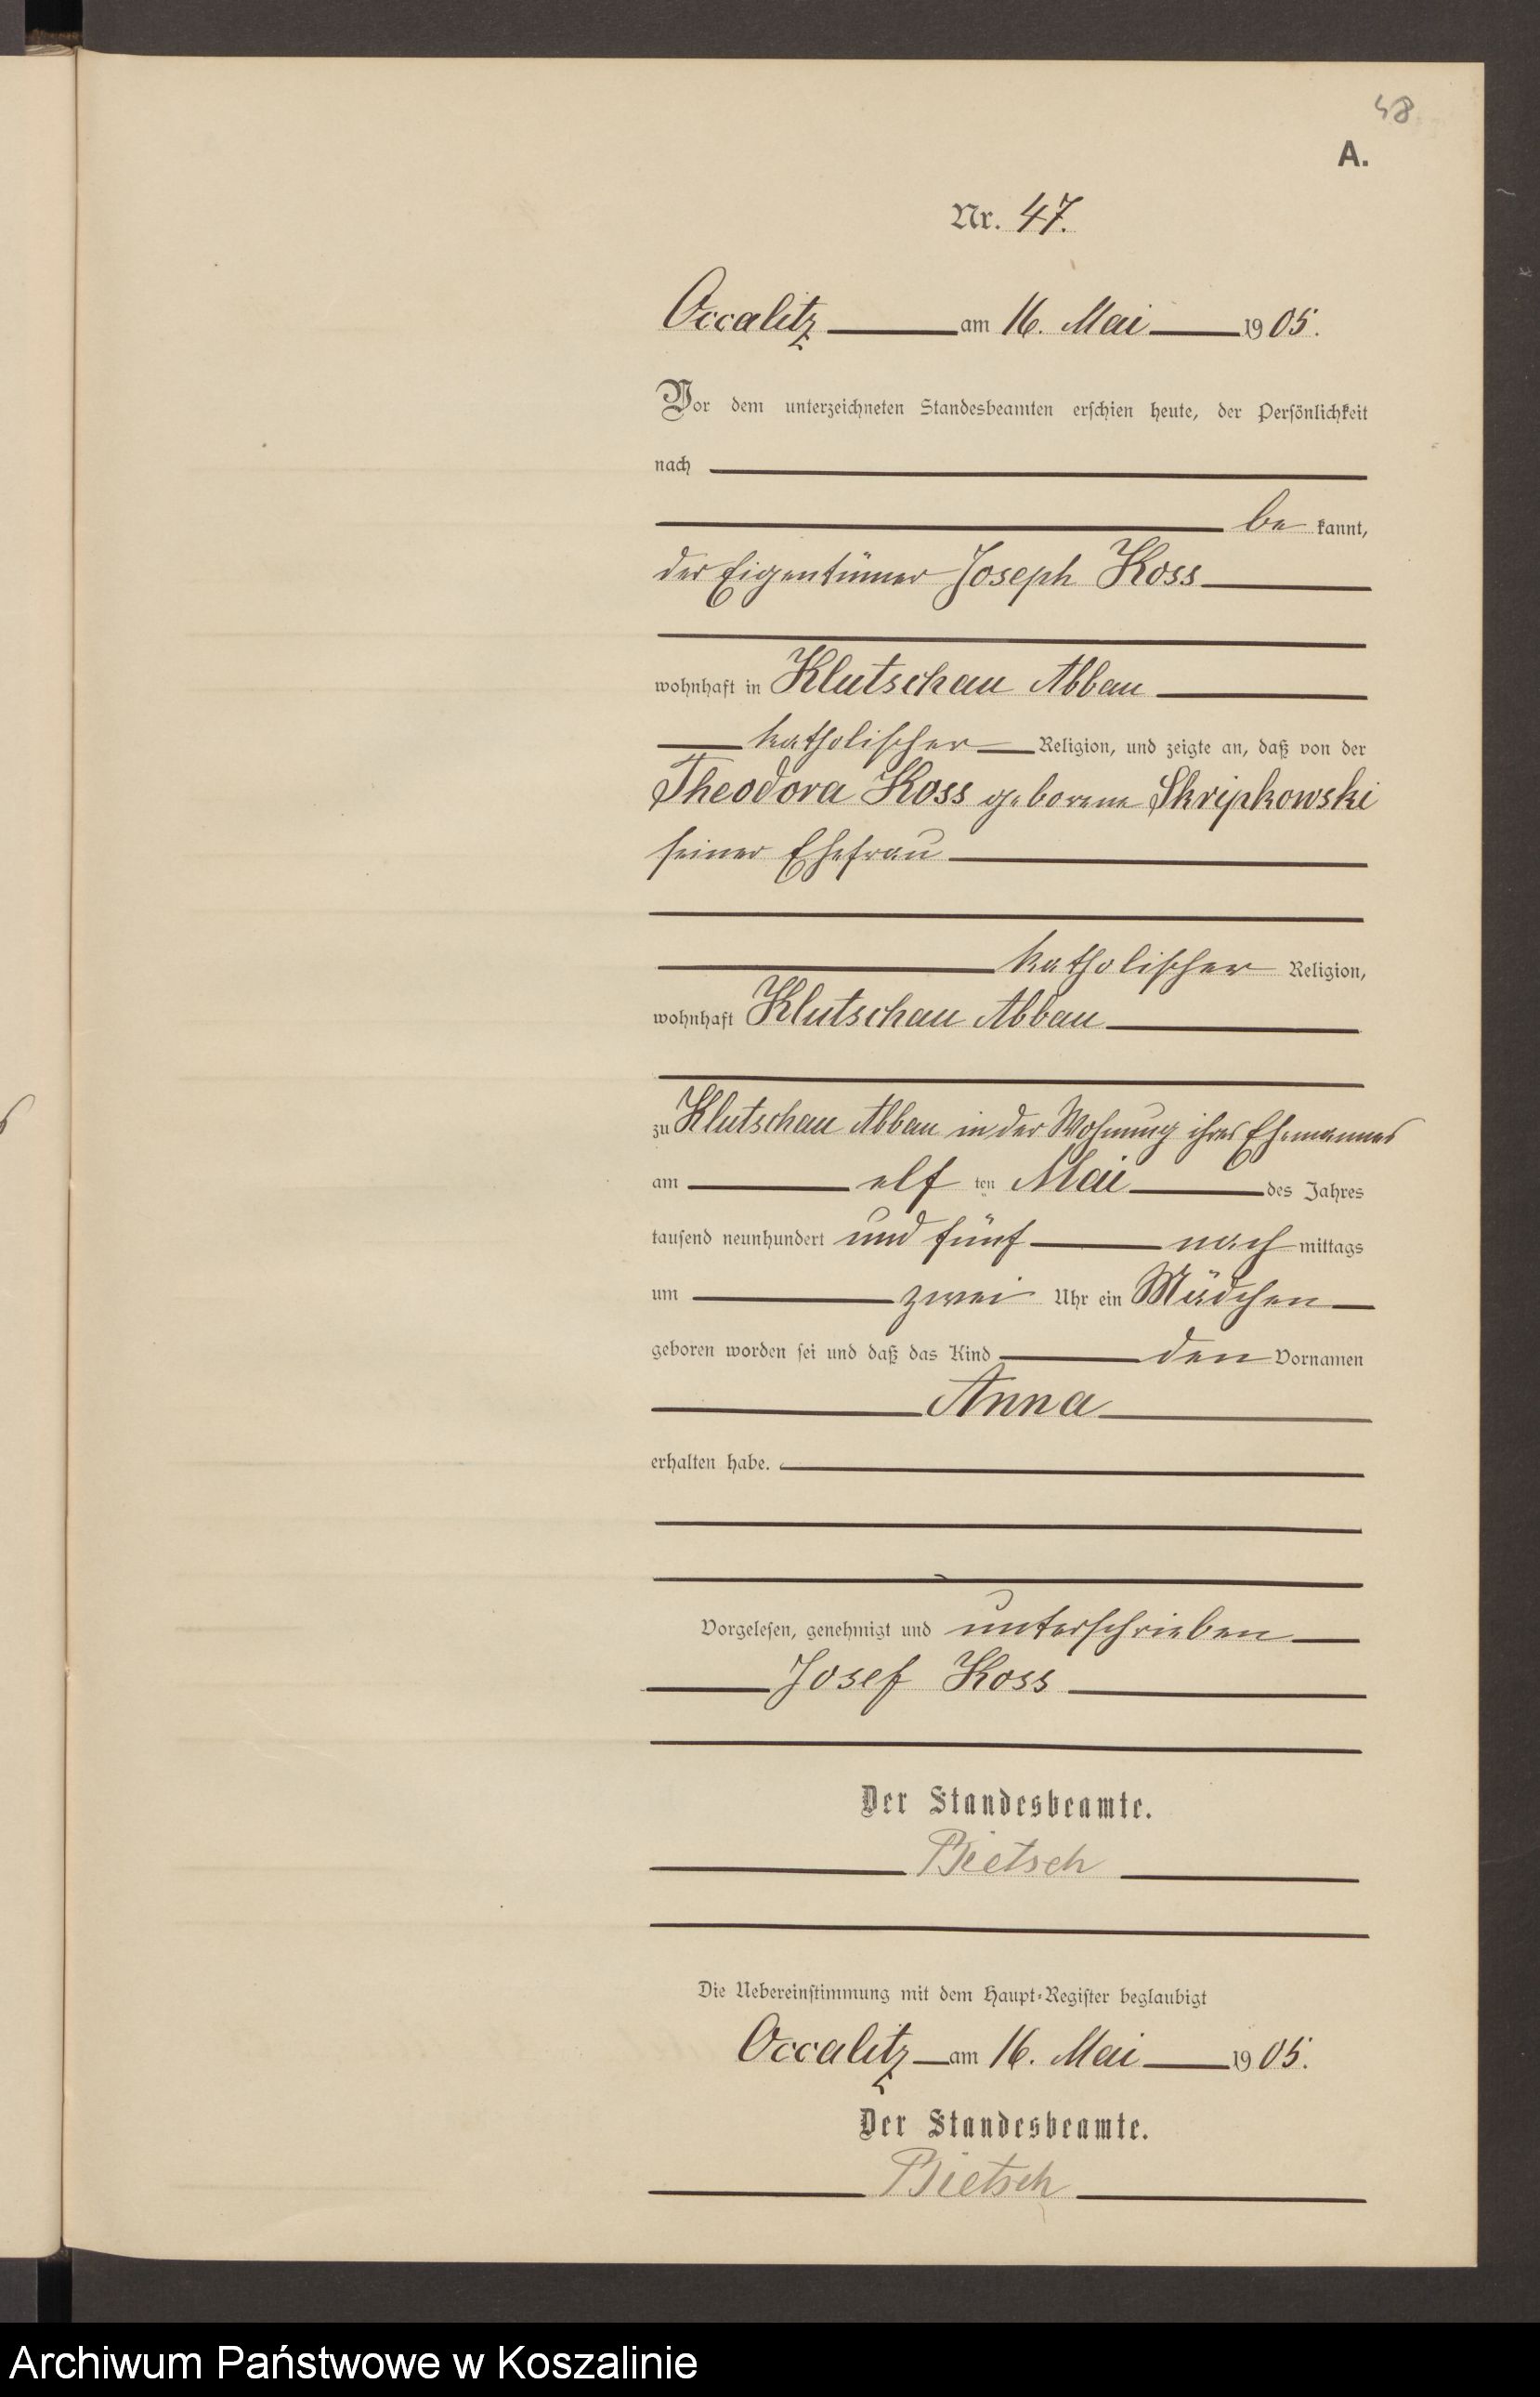 48
A.
Nr. 47.
Occalitz am 16. Mai 1905.
Vor dem unterzeichneten Standesbeamten erschien heute, der Persönlichkeit
nach
be kannt,
der Eigentümer Joseph Koss
wohnhaft in Klutschau Abbau
katholischer Religion, und zeigte an, daß von der
Theodora Koss geborene Skripkowski
seiner Ehefrau
katholischer Religion,
wohnhaft Klutschau Abbau
zu Klutschau Abbau in der Wohnung ihres Ehemannes
am elf ten Mai des Jahres
tausend neunhundert und fünf nach mittags
um zwei Uhr ein Mädchen
geboren worden sei und daß das Kind den Vornamen
Anna
erhalten habe.
Vorgelesen, genehmigt und unterschrieben
Josef Koss
Der Standesbeamte.
Bietsch
Die Uebereinstimmung mit dem Haupt-Register beglaubigt
Occalitz am 16. Mai 1905.
Der Standesbeamte.
Bietsch
Archiwum Państwowe w Koszalinie